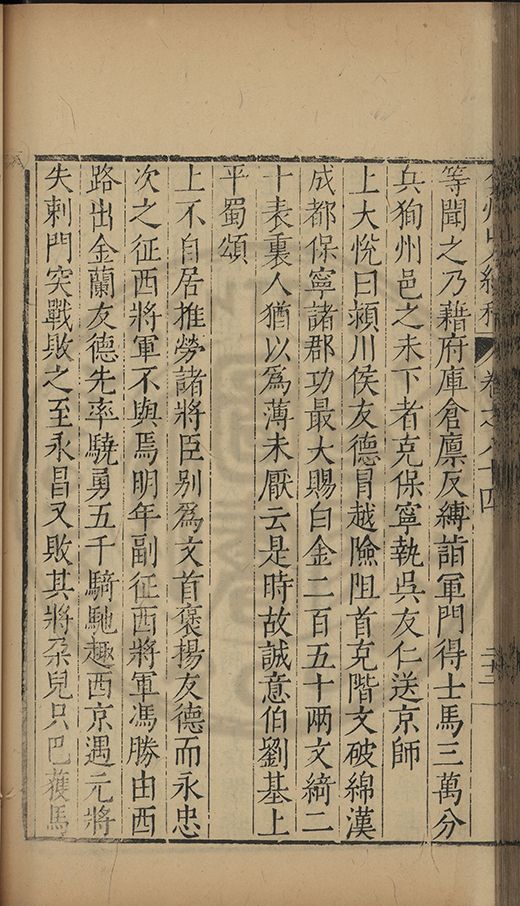 弇州山人續稿 卷之八十四
等聞之乃藉府庫倉廪反縛詣軍門得士馬三萬分
兵狥州邑之未下者克保寧執吳友仁送京師
上大悅曰潁川侯友德冒越險阻首克階文破綿漢
成都保寧諸郡功最大賜白金二百五十兩文綺二
十表裏人猶以為薄未厭云是時故誠意伯劉基上
平蜀頌
上不自居推勞諸將臣别為文首褒揚友德而永忠
次之征西將軍不與焉明年副征西將軍馮勝由西
路出金蘭友德先率驍勇五千騎馳趣西京遇元將
失剌門突戰敗之至永昌又敗其將朶兒只巴獲馬